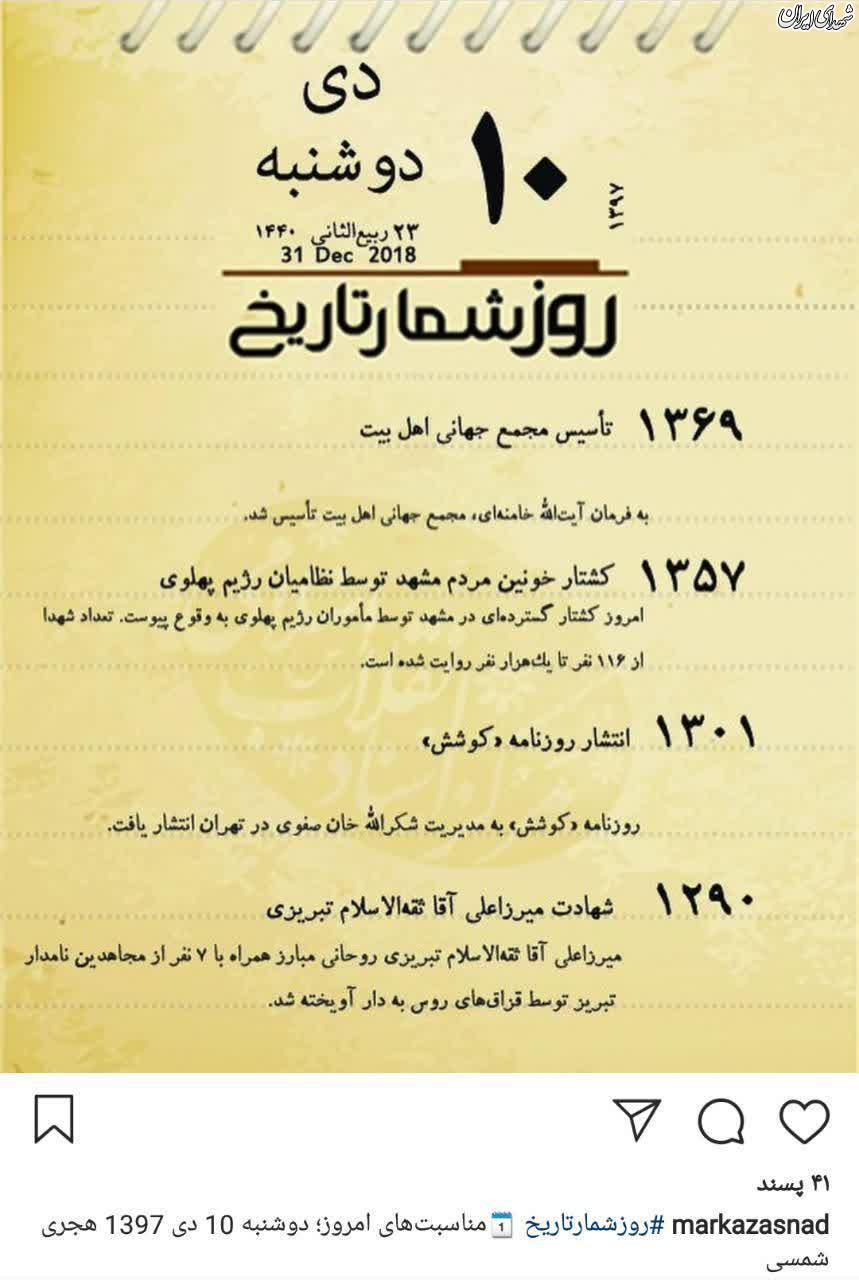 شهدای ایران
دی
۱۰ دوشنبه
۱۳۹۷
۲۳ ربیع‌الثانی ۱۴۴۰
31 Dec 2018
روزشمار تاریخ
۱۳۶۹ تأسیس مجمع جهانی اهل بیت
به فرمان آیت‌الله خامنه‌ای، مجمع جهانی اهل بیت تأسیس شد.
۱۳۵۷ کشتار خونین مردم مشهد توسط نظامیان رژیم پهلوی
امروز کشتار گسترده‌ای در مشهد توسط مأموران رژیم پهلوی به وقوع پیوست. تعداد شهدا
از ۱۱۶ نفر تا یک‌هزار نفر روایت شده است.
۱۳۰۱ انتشار روزنامه «کوشش»
روزنامه «کوشش» به مدیریت شکرالله خان صفوی در تهران انتشار یافت.
۱۲۹۰ شهادت میرزاعلی آقا ثقه‌الاسلام تبریزی
میرزاعلی آقا ثقه‌الاسلام تبریزی روحانی مبارز همراه با ۷ نفر از مجاهدین نامدار
تبریز توسط قزاق‌های روس به دار آویخته شد.
۴۱ پسند
markazasnad #روزشمارتاریخ 1 مناسبت‌های امروز؛ دوشنبه 10 دی 1397 هجری
شمسی